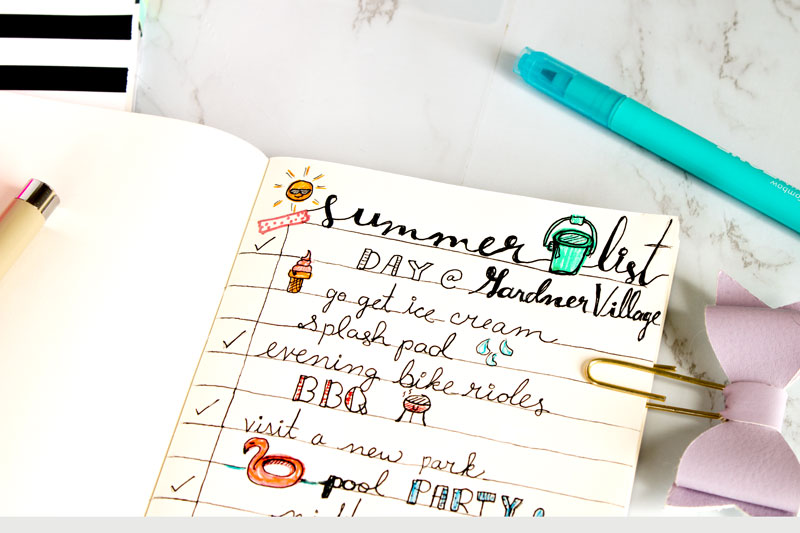 summer list
DAY @ Gardner Village
go get ice cream
splash pad
evening bike rides
BBQ
visit a new park
pool PARTY